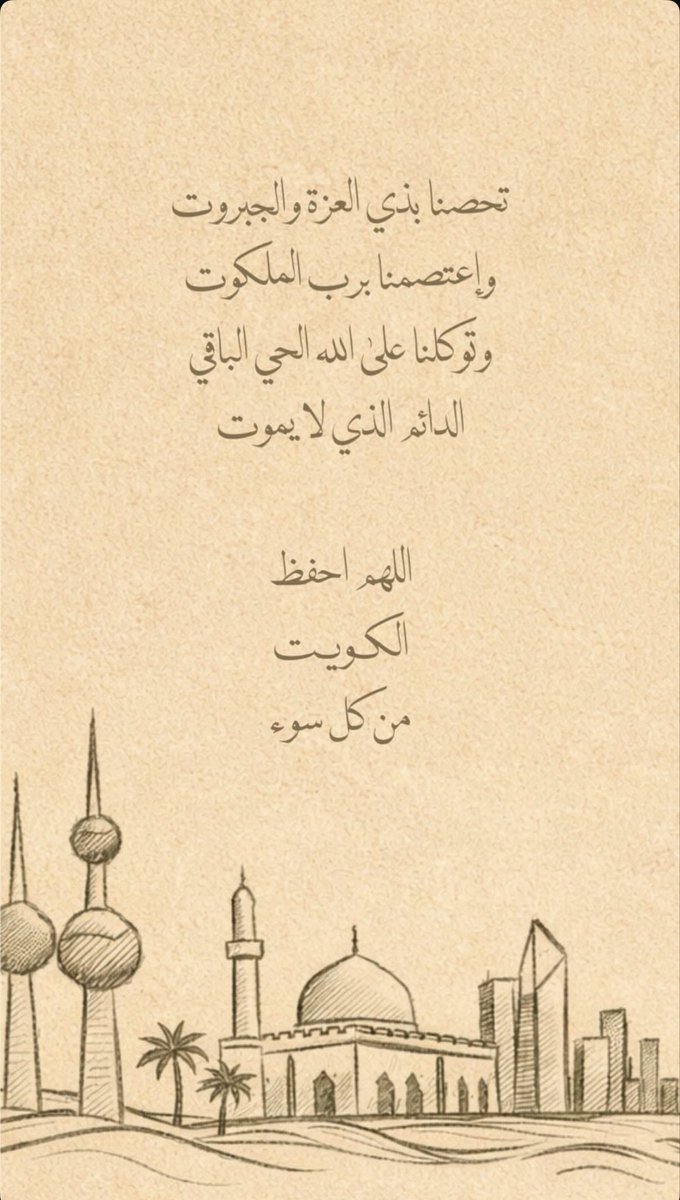 تحصنا بذي العزة والجبروت
وإعتصمنا برب الملكوت
وتوكلنا علىٰ الله الحي الباقي
الدائم الذي لا يموت
اللهم احفظ
الكـويـت
من كل سوء